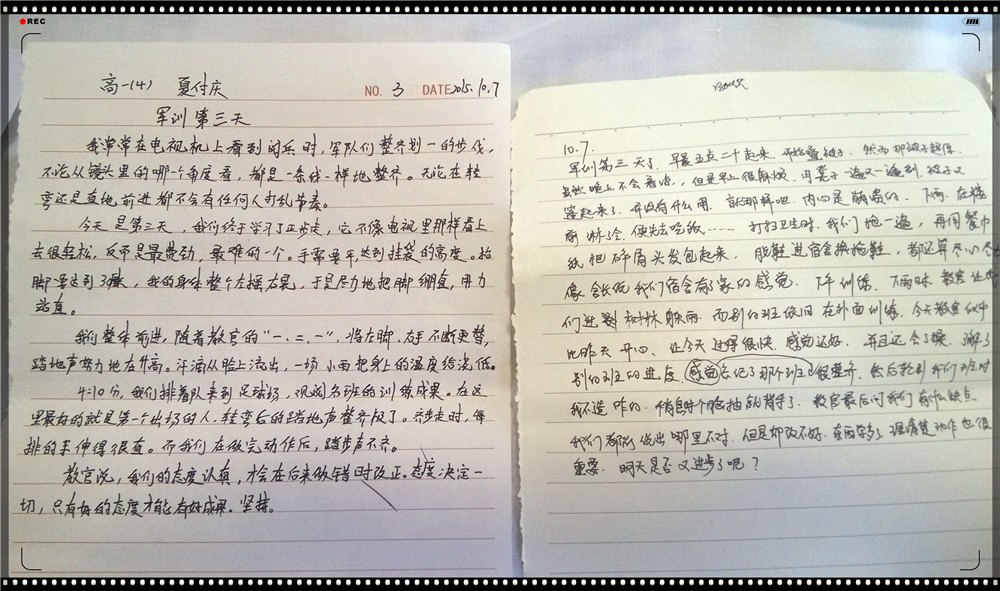 REC
高一(4) 夏付庆
NO. 3 DATE 2015.10.7
军训第三天
我常常在电视机上看到阅兵时，军队们整齐划一的步伐，
不论从镜头里的哪一个角度看，都是一条线一样地整齐。无论在转
弯还是直地前进都不会有任何人打乱节奏。
今天是第三天，我们终于学习了正步走，它不像电视里那样看上
去很轻松，反而是最费劲，最难的一个。手要要平达到挂袋的高度。抬
脚要达到，我的身体整个左摇右晃，于是尽力地把脚绷直，用力
站直。
我们整体前进，随着教官的“一、二、一”，将左脚、右手不断更替，
踏地声努力地在升高。汗滴从脸上流出，一场小雨把身上的温度给浇低。
4:10分，我们排着队来到足球场，巩阅各班的训练成果。在这
里最好的就是第一个出场的人，转弯后的踏地声整齐极了。齐步走时，每
排的手伸得很直。而我们在做完动作后，踏步声不齐。
教官说，我们的态度认真，才会在后来做错时改正。态度决定一
切，只有好的态度才能有好成果。坚持。
10.7.
军训第三天了，早晨五点二十起来，开始叠被子，然而那被子超厚
虽然晚上不会着凉，但是早上很麻烦，用凳子一遍又一遍刮，被子又
蓬起来了，并没有什么用，就那样吧，内心是崩溃的。下雨，在楼
前淋了会，便去吃饭……打扫卫生时，我们拖一遍，再用餐巾
纸把碎屑头发包起来，脱鞋进宿舍换拖鞋，都还算尽心尽力
像舍长说我们宿舍有了家的感觉。下午训练，下雨时，教官让
们进树林躲雨，而别的班依旧在外面训练，今天教官似乎
比昨天开心，让今天过得很快，感觉还好，并且还会了操，了解了
别的班的进度，感觉忘记了那个班也很整齐，然后轮到我们班时
我不造咋的，稍息时个脸抽的背手了，教官最后问我们有什么缺点
我们都能说出哪里不对，但是却改不好，东西学多了，理清楚动作也很
重要，明天是否又进步了呢？